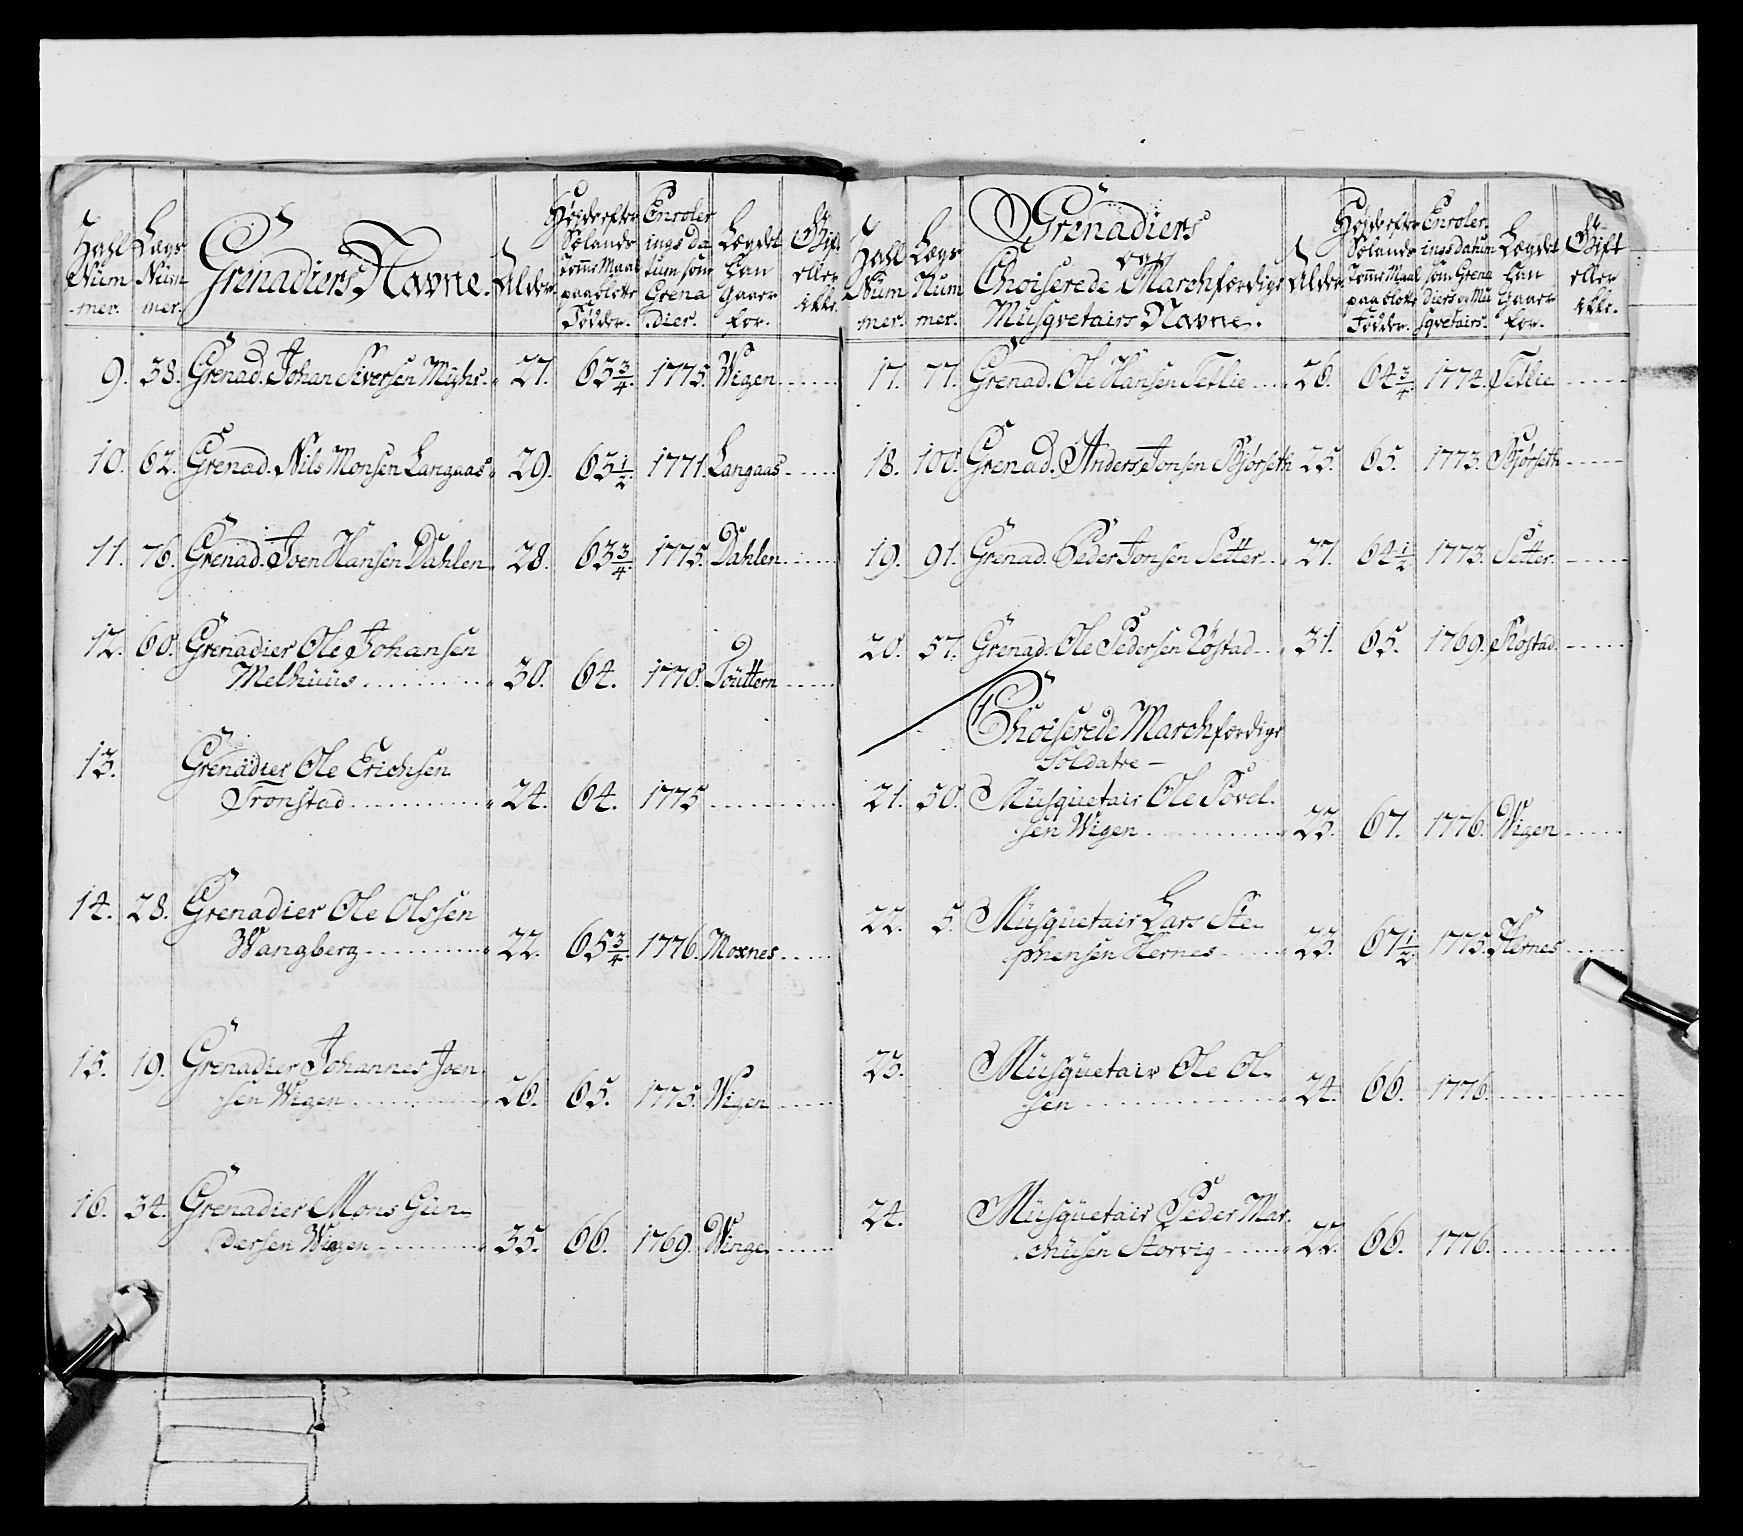 Zahl Num mer.
Lægs Num mer.
Grenadiers Navne.
Alder.
Høider efter Sølands Tomme Maal paa blotte Fødder.
Enroler ings da tum som Grena dier.
Lægdet han gaaer for.
Gift eller ikke.
9. 38. Grenad. Johan Siversen Myhr. 27. 63 3/4. 1775. Wigen
10. 62. Grenad. Nils Monsen Langaas 29. 63 1/2. 1771. Langaas
11. 76. Grenad. Iven Hansen Dahlen 28. 63 3/4. 1775. Dahlen
12. 60. Grenadier Ole Johansen
Melhuus 30. 64. 1770. Touttern
13. Grenadier Ole Erichsen
Tronstad 24. 64. 1775
14. 28. Grenadier Ole Olssen
Wangberg 22. 65 3/4. 1776. Moxnes
15. 19. Grenadier Johannes Iven
sen Wigen 26. 65. 1775. Wigen
16. 34. Grenadier Mons Gun
dersen Wigen 35. 66. 1769. Winge
Zahl Num mer.
Lægs Num mer.
Grenadiers
og
Choiserede Marchfærdige
Musqvetairs Navne.
Alder.
Høider efter Sølands Tomme Maal paa blotte Fødder.
Enroler ings datum som Grena diers og Mu sqvetairs.
Lægdet han gaaer for.
Gift eller ikke.
17. 77. Grenad. Ole Hansen Tetlie 26. 64 3/4. 1774. Tetlie
18. 100. Grenad. Anders Jonsen Biørseth 25. 65. 1773. Biørseth
19. 91. Grenad. Peder Jonsen Setter 27. 64 1/2. 1773. Setter
20. 57. Grenad. Ole Pedersen Røstad 31. 65. 1769. Røstad
Choiserede Marchfærdige
Soldater
21. 50. Musquetair Ole Povel
sen Wigen 23. 67. 1776. Wigen
22. 5. Musquetair Lars Ste
phensen Hernes 23. 67 1/2. 1775. Hernes
23. Musquetair Ole Ol
sen 24. 66. 1776.
24. Musquetair Peder Mar
chusen Storvig 22. 66. 1776.